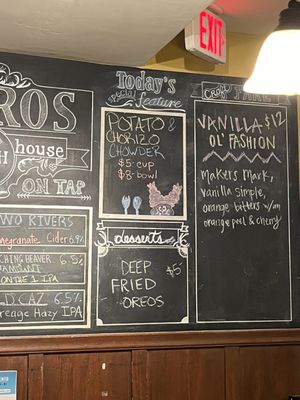 EXIT
ROS
house
ON TAP
WO RIVERS
megranate Cider 6.9%
CHING BEAVER
6.5%
ON THE 1 IPA
D CAZ 6.5%
reage Hazy IPA
Today's
special
feature
POTATO &
CHORIZO
CHOWDER
$5-cup
$8-bowl
desserts
DEEP $5
FRIED
OREOS
VANILLA $12
OL' FASHION
Makers Mark,
vanilla simple,
orange bitters w/ an
orange peel & cherry